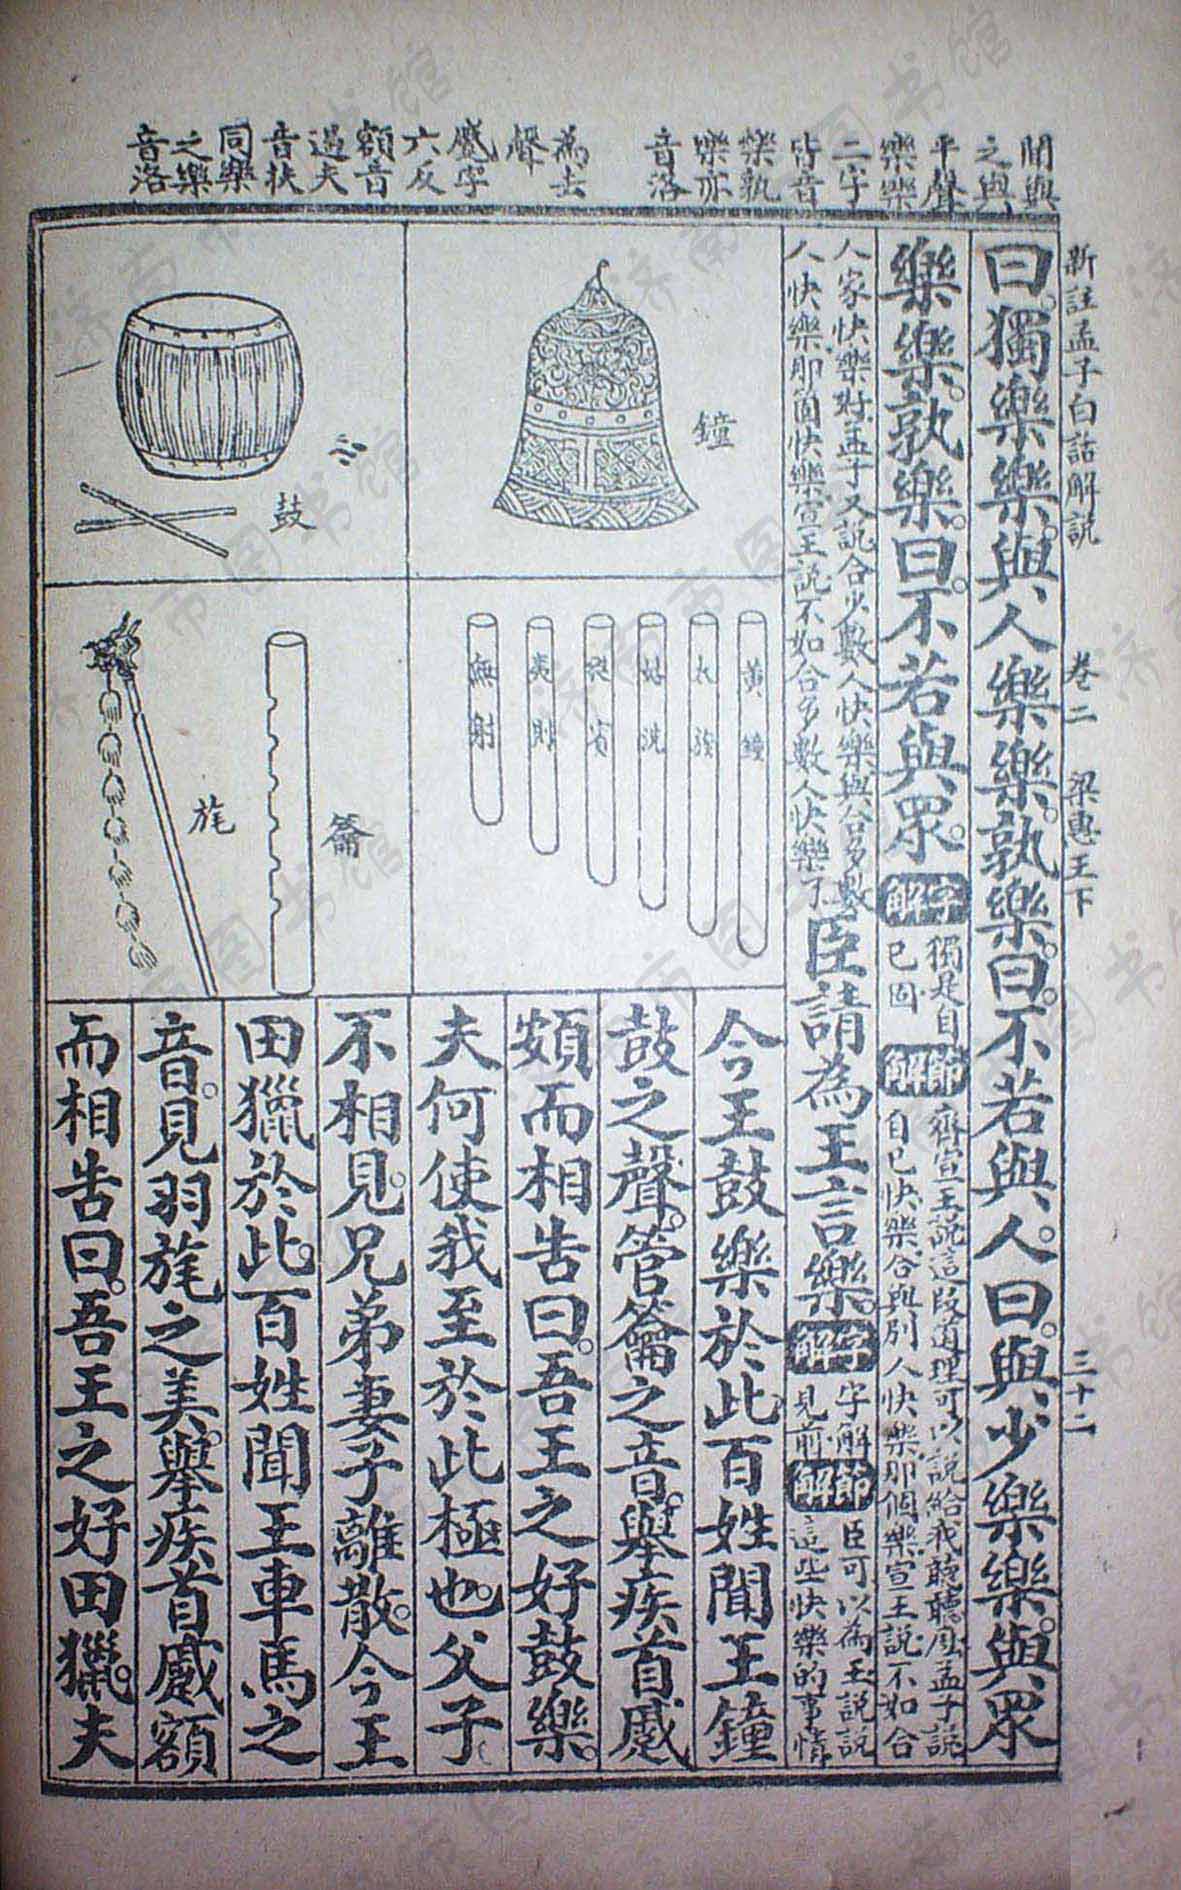 聞與
之與
平聲
樂樂
二字
皆音
樂孰
樂亦
音洛
為去
聲
蹙字
六反
頞音
遏夫
音扶
同樂
之樂
音洛
新註孟子白話解說 卷二 梁惠王下 三十二
曰。獨樂樂。與人樂樂。孰樂。曰。不若與人。曰。與少樂樂。與眾
樂樂。孰樂。曰。不若與眾。
字解
獨是自
己固
節解
齊宣王說這段道理可以說給我聽聽風孟子說
自己快樂合與別人快樂那個樂宣王說不如合
人家快樂財孟子又說合少數人快樂與合多數
人快樂那箇快樂宣王說不如合多數人快樂了
臣請為王言樂。
字解
字解
見前
節解
臣可以為王說說
這些快樂的事情
鐘
鼓
黃鐘
太簇
姑洗
蕤賓
夷則
無射
籥
旄
今王鼓樂於此百姓聞王鐘
鼓之聲。管籥之音。舉疾首蹙
頞而相告曰。吾王之好鼓樂。
夫何使我至於此極也。父子
不相見。兄弟妻子離散。今王
田獵於此。百姓聞王車馬之
音。見羽旄之美。舉疾首蹙額
而相告曰。吾王之好田獵。夫